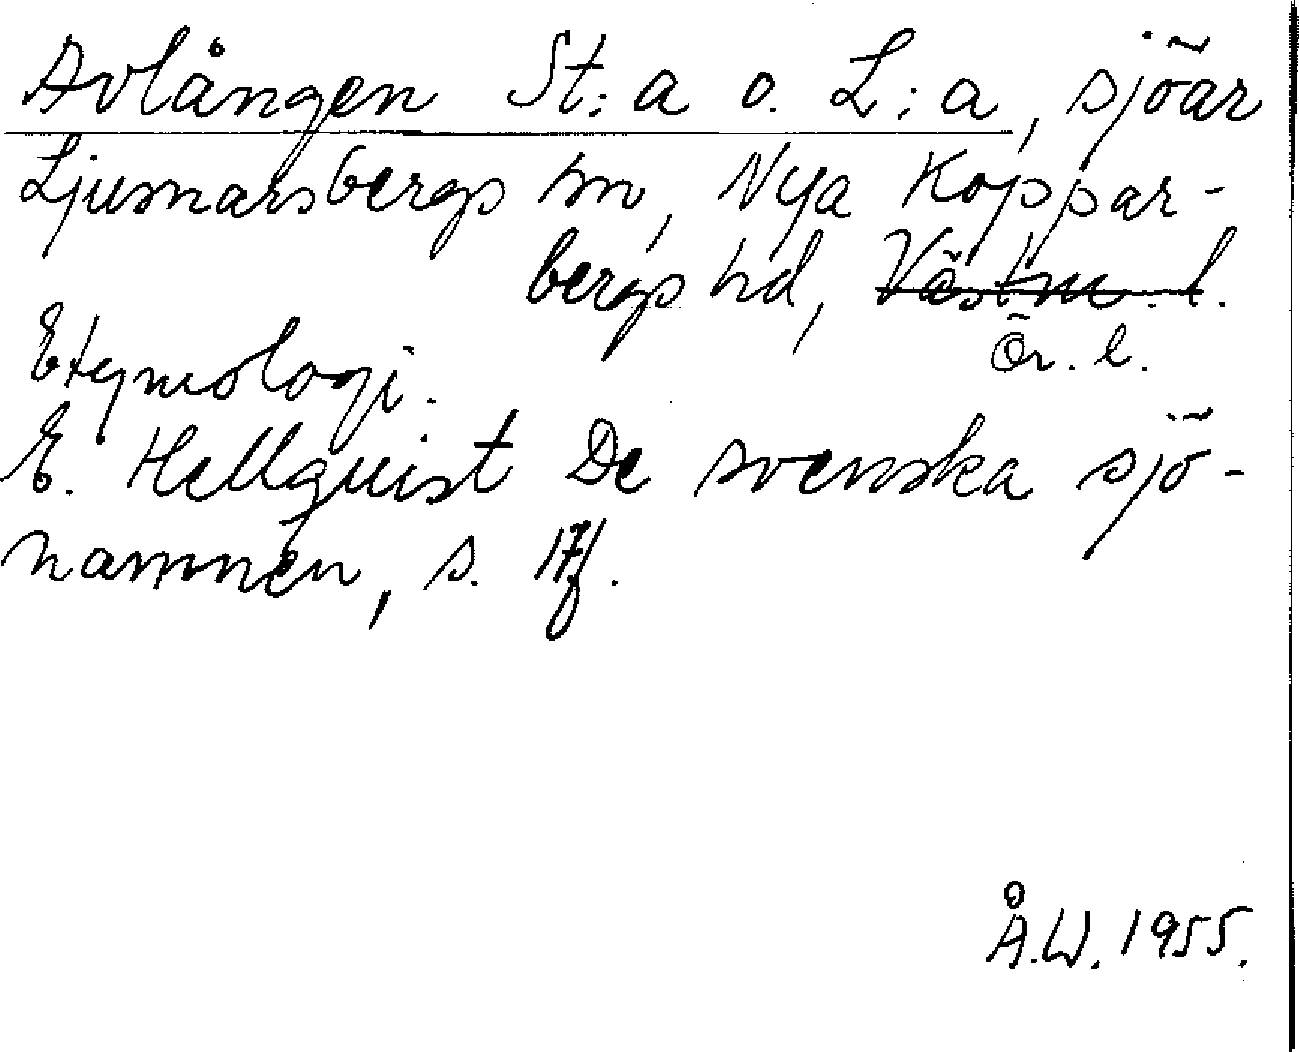 Avlången St:a o. L:a, sjöar
Ljusnarsbergs sn, Nya Koppar-
bergs hd, Västm. l.
Ör. l.
Etymologi.
E. Hellquist De svenska sjö-
namnen, s. 17f.
Å.W. 1955.